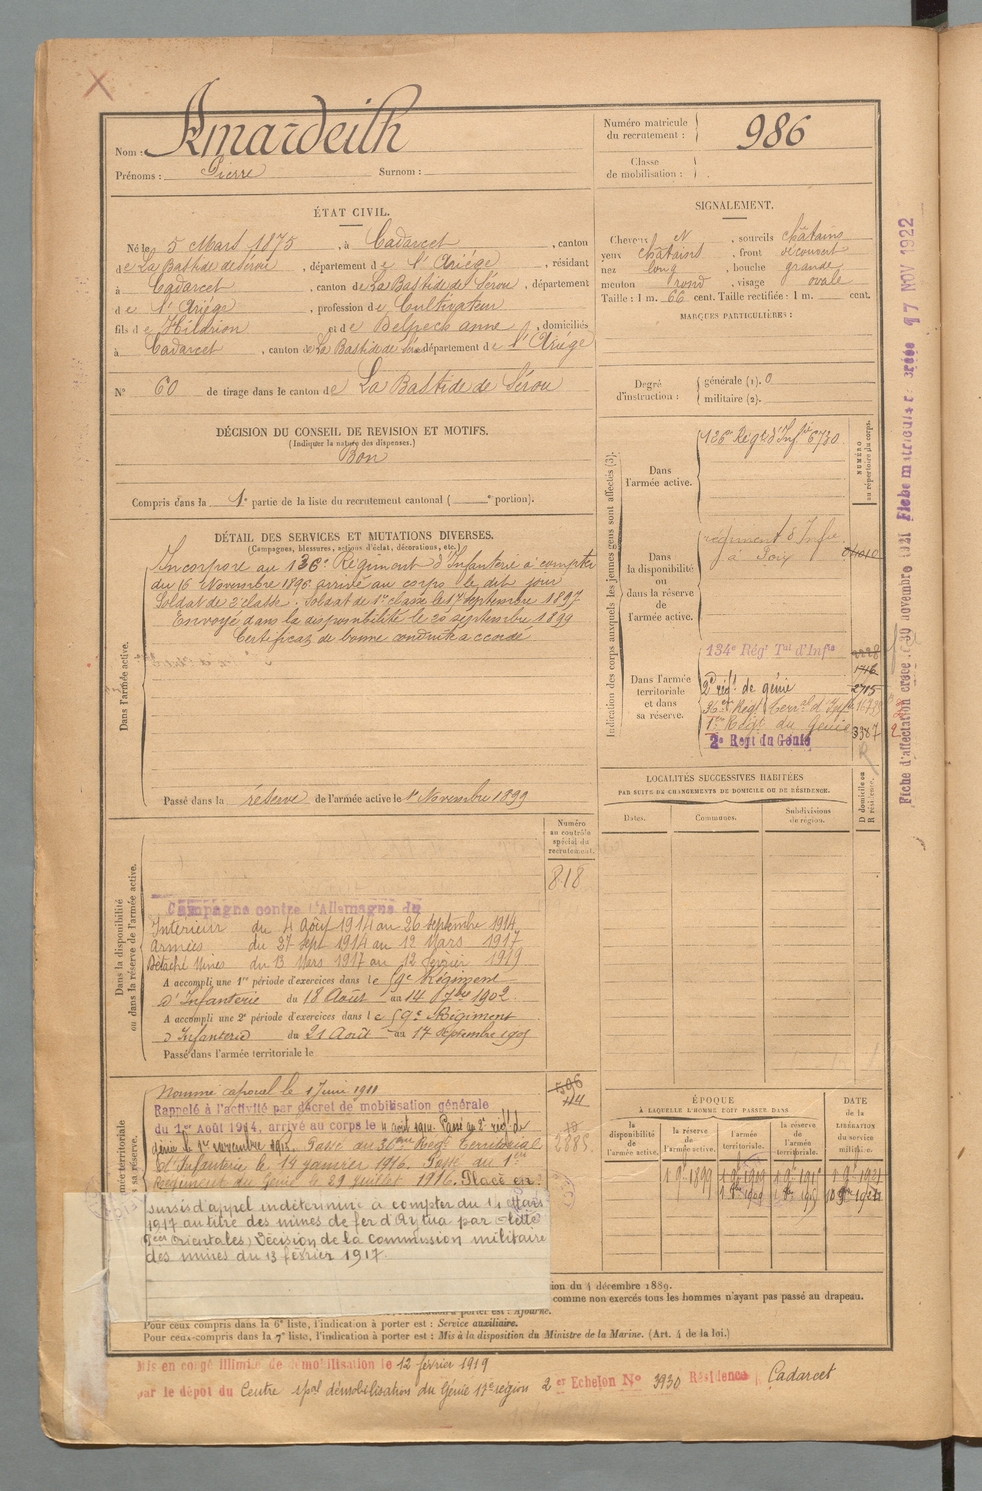 Nom : Amardeilh
Prénoms : Pierre Surnom :
Numéro matricule du recrutement : 986
Classe de mobilisation :
ÉTAT CIVIL.
Né le 5 Mars 1875, à Cadarcet, canton
de La Bastide de Sérou, département de l'Ariége, résidant
à Cadarcet, canton de La Bastide de Sérou, département
de l'Ariége, profession de Cultivateur
fils de Hilarion et de Delpech anne, domiciliés
à Cadarcet, canton de La Bastide de Sérou département de l'Ariége
N° 60 de tirage dans le canton de La Bastide de Sérou
SIGNALEMENT.
Cheveux N, sourcils châtains
yeux châtains, front découvert
nez long, bouche grande
menton rond, visage ovale
Taille : 1 m. 66 cent. Taille rectifiée : 1 m. cent.
MARQUES PARTICULIÈRES :
Degré d'instruction : générale (1). 0
militaire (2).
DÉCISION DU CONSEIL DE REVISION ET MOTIFS.
(Indiquer la nature des dispenses.)
Bon
Compris dans la 1e partie de la liste du recrutement cantonal ( e portion).
DÉTAIL DES SERVICES ET MUTATIONS DIVERSES.
(Campagnes, blessures, actions d'éclat, décorations, etc.)
Dans l'armée active.
Incorporé au 126e Régiment d'Infanterie à compter
du 16 Novembre 1896 arrivé au corps le dit jour
Soldat de 2e classe. Soldat de 1re classe le 17 septembre 1897
Envoyé dans la disponibilité le 20 septembre 1899
Certificat de bonne conduite accordé
Passé dans la réserve de l'armée active le 1er Novembre 1899
Indication des corps auxquels les jeunes gens sont affectés (3).
NUMÉRO au répertoire du corps.
Dans l'armée active.
126e Régt d'Infrie 6730
Dans la disponibilité ou dans la réserve de l'armée active.
régiment d'Infie
à Foix
Dans l'armée territoriale et dans sa réserve.
134e Régt Tal d'Infie
1716
2e régt. de génie 2715
1er Régt du Génie 3387
2e Regt du Génie
LOCALITÉS SUCCESSIVES HABITÉES
PAR SUITE DE CHANGEMENTS DE DOMICILE OU DE RÉSIDENCE.
Dates. Communes. Subdivisions de région. D domicile ou R résidence.
Dans la disponibilité ou dans la réserve de l'armée active.
Numéro au contrôle spécial du recrutement.
818
Campagne contre l'Allemagne du
Intérieur du 4 Août 1914 au 26 septembre 1914
Armées du 27 Sept 1914 au 12 Mars 1917
Détaché Mines du 13 Mars 1917 au 12 février 1919
A accompli une 1re période d'exercices dans le 59e Régiment
d'Infanterie du 18 Août au 14 7bre 1902
A accompli une 2e période d'exercices dans le 59e Régiment
d'Infanterie du 21 Août au 17 septembre 1905
Passé dans l'armée territoriale le
Nommé caporal le 1 Juin 1911
Rappelé à l'activité par décret de mobilisation générale
du 1er Août 1914, arrivé au corps le 4 août 1914. Passé au 2e régt de
génie le 1er novembre 1915. Passé au 36eme Régt Territorial
d'Infanterie le 14 janvier 1916. Passé au 1er
Régiment du Génie le 29 juillet 1916. Placé en
sursis d'appel indéterminé à compter du 14 Mars
1917 au titre des mines de fer d'Aytua par Olette
(Pées Orientales) Décision de la Commission militaire
des mines du 13 février 1917.
596
2885
ÉPOQUE
À LAQUELLE L'HOMME DOIT PASSER DANS
la disponibilité de l'armée active. la réserve de l'armée active. l'armée territoriale. la réserve de l'armée territoriale.
DATE de la LIBÉRATION du service militaire.
ion du 4 décembre 1889.
comme non exercés tous les hommes n'ayant pas passé au drapeau.
à porter est : Ajourné.
Pour ceux compris dans la 6e liste, l'indication à porter est : Service auxiliaire.
Pour ceux-compris dans la 7e liste, l'indication à porter est : Mis à la disposition du Ministre de la Marine. (Art. 4 de la loi.)
Mis en congé illimité de démobilisation le 12 février 1919
par le dépôt du Centre spal démobilisation du Génie 17e région 2 er Echelon N° 3930 Résidence Cadarcet
Fiche d'affectation créée le 30 novembre 1921 Fiche matricule créée 17 NOV 1922